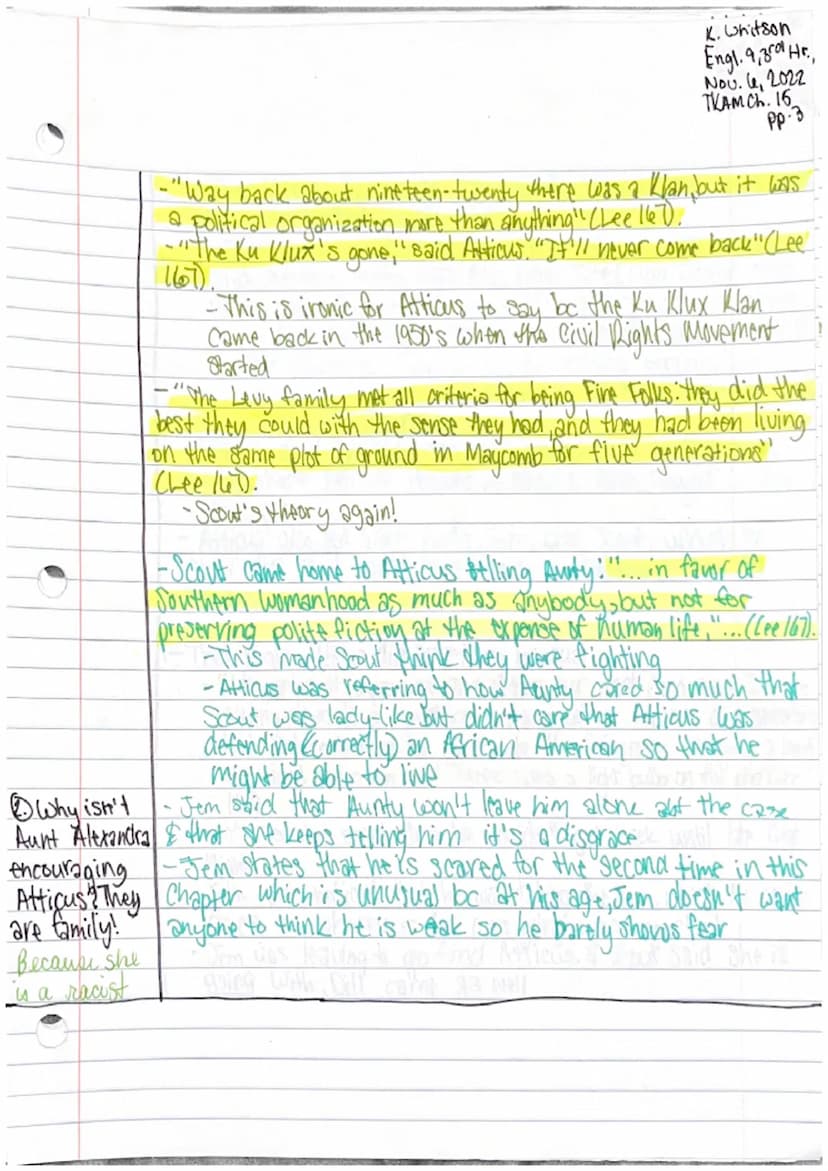 K. Whitson
Engl. 9, 3rd Hr.,
Nov. 6, 2022
TKAM Ch. 15
pp. 3
-"Way back about nineteen-twenty there was a Klan, but it was
a political organization more than anything" (Lee 167).
-"The Ku Klux's gone," said Atticus. "It'll never come back" (Lee
167).
- This is ironic for Atticus to say bc the Ku Klux Klan
came back in the 1950's when the Civil Rights Movement
started
-"The Levy family met all criteria for being Fine Folks: they did the
best they could with the sense they had, and they had been living
on the same plot of ground in Maycomb for five generations"
(Lee 167).
- Scout's theory again!
- Scout came home to Atticus telling Aunty: "... in favor of
Southern womanhood as much as anybody, but not for
preserving polite fiction at the expense of human life,"... (Lee 167).
- This made Scout think they were fighting
- Atticus was referring to how Aunty cared so much that
Scout was lady-like but didn't care that Atticus was
defending (correctly) an African American so that he
might be able to live
- Jem said that Aunty won't leave him alone abt the case
& that she keeps telling him it's a disgrace
- Jem states that he is scared for the second time in this
Chapter which is unusual bc at his age, Jem doesn't want
anyone to think he is weak so he barely shows fear
② Why isn't
Aunt Alexandra
encouraging
Atticus? They
are family!
Because she
is a racist